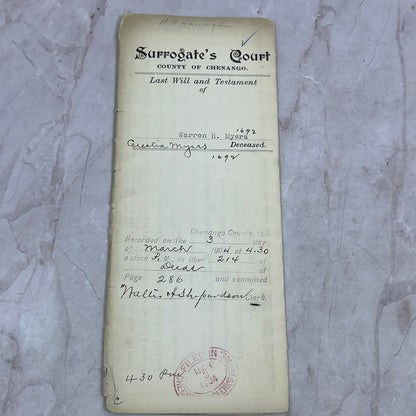 H. H. Harrington
Surrogate's Court
COUNTY OF CHENANGO.
Last Will and Testament
of
1692
Warron H. Myers
Cecelia Myers Deceased.
1692
Chenango County, ss.
Recorded on the 3 day
of March 1904 at 4.30
o'clock P. M. in liber 214 of
Deeds at
Page 286 and examined
Walter A Shepardson Clerk.
FILED IN
MAR
3
1904
430 Pm
C